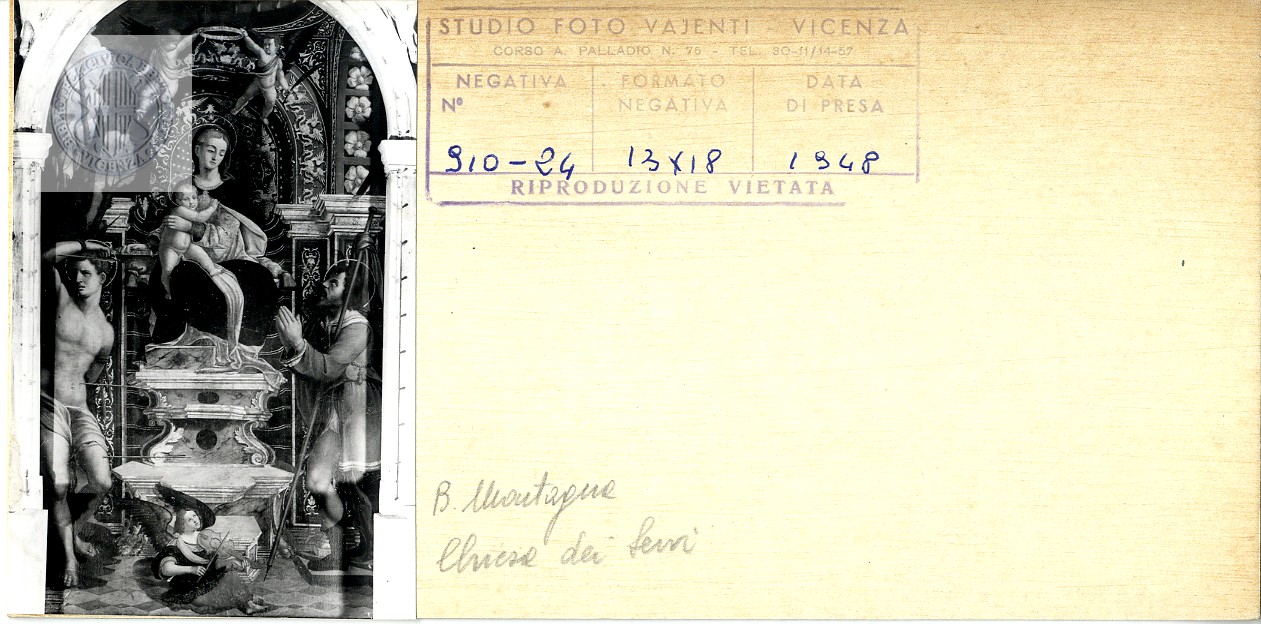 STUDIO FOTO VAJENTI - VICENZA
CORSO A. PALLADIO N. 76 - TEL. 30-11/14-57
NEGATIVA
Nº
910-24
FORMATO
NEGATIVA
13X18
DATA
DI PRESA
1948
RIPRODUZIONE VIETATA
B. Montagna
Chiesa dei Servi